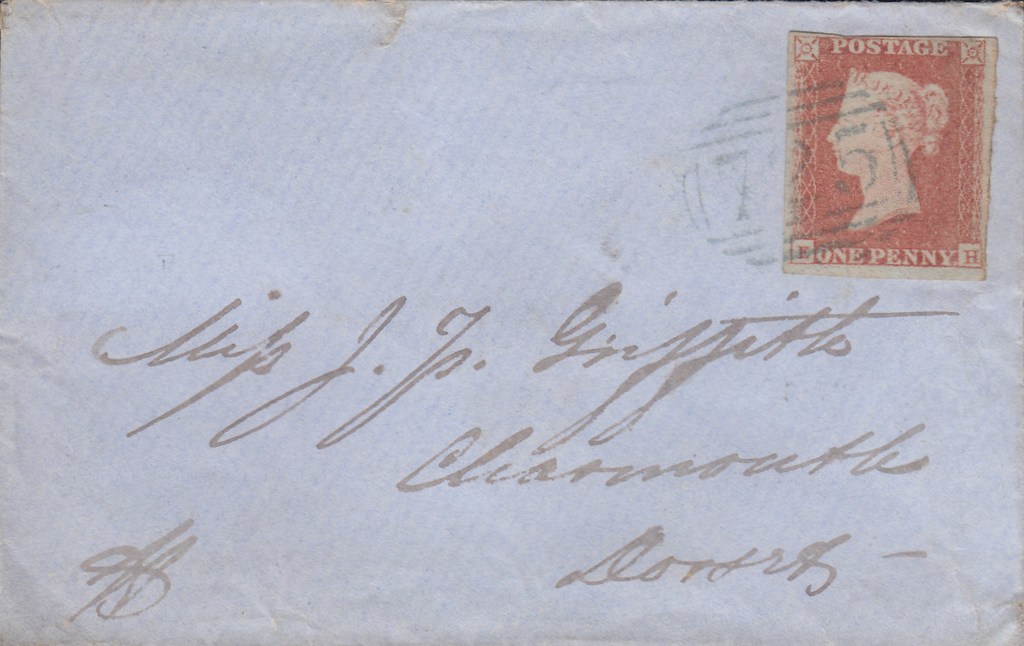 POSTAGE
E ONE PENNY H
Miss J. F. Griffith
Charmouth
Dorset